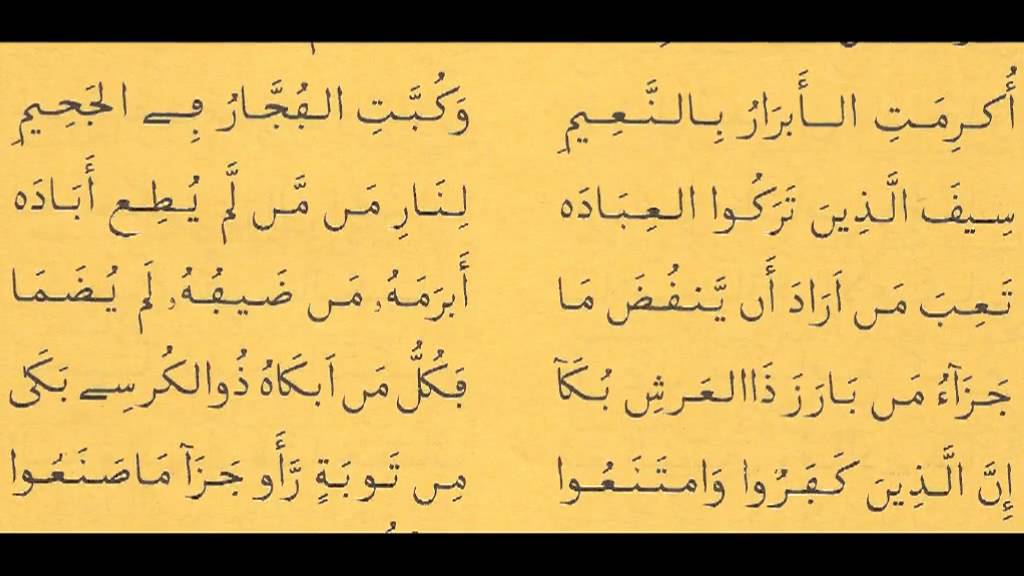 أُكرِمَتِ الأَبرَارُ بِالنَّعِيمِ وَكُبَّتِ الفُجَّارُ فِے الجَحِيمِ
سِيفَ الَّذِينَ تَرَكُوا العِبَادَه لِنَارِ مَن مَّن لَّم يُطِع أَبَادَه
تَعِبَ مَن اَرَادَ أَن يَّنفُضَ مَا أَبرَمَهُۥ مَن ضَيفُهُۥ لَم يُضَمَا
جَزَآءُ مَن بَارَزَ ذَاالعَرشِ بُكَآ فَكُلُّ مَن اَبكَاهُ ذُوالكُرسِے بَكَى
إِنَّ الَّذِينَ كَفَرُوا وَامتَنَعُوا مِن تَوبَةٍ رَّأَو جَزَآ مَاصَنَعُوا